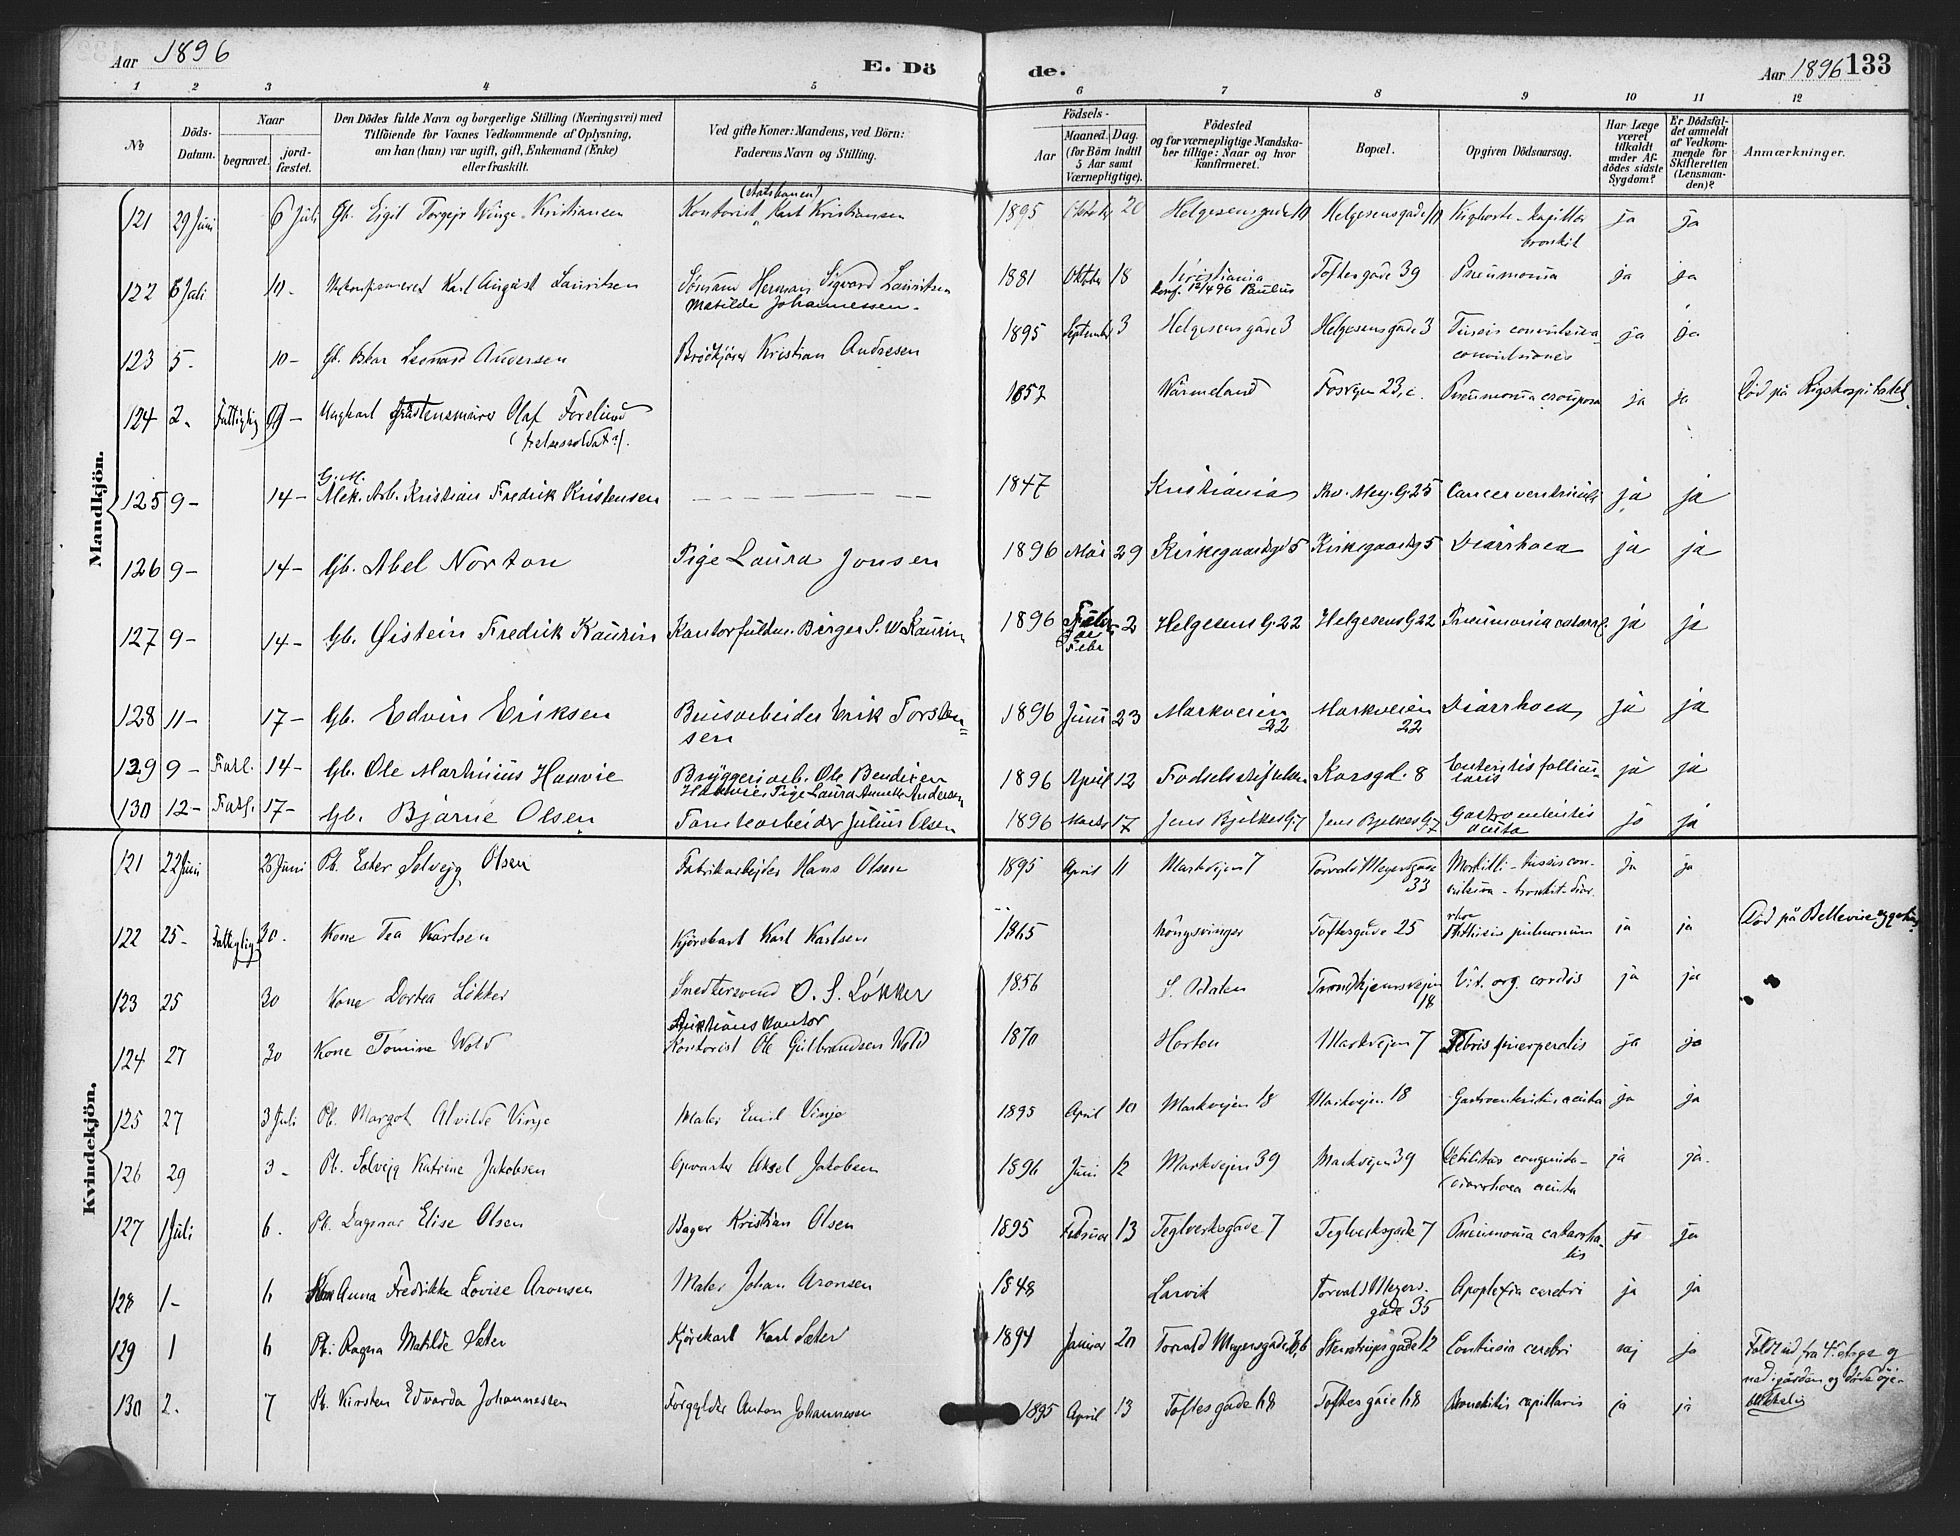 Aar 1896
E. Dö
de.
Aar 1896 133
1 2 3 4 5 6 7 8 9 10 11 12
No
Döds-Datum.
Naar
begravet.
jord-fæstet.
Den Dödes fulde Navn og borgerlige Stilling (Næringsvei) med
Tilföiende for Voxnes Vedkommende af Oplysning,
om han (hun) var ugift, gift, Enkemand (Enke)
eller fraskilt.
Ved gifte Koner: Mandens, ved Börn:
Faderens Navn og Stilling.
Födsels-
Aar
Maaned. Dag.
(for Börn indtil
5 Aar samt
Værnepligtige).
Födested
og for værnepligtige Mandska-
ber tillige: Naar og hvor
konfirmeret.
Bopæl.
Opgiven Dödsaarsag.
Har Læge
været
tilkaldt
under Af-
dödes sidste
Sygdom?
Er Dödsfal-
det anmeldt
af Vedkom-
mende for
Skifteretten
(Lensman-
den)?
Anmærkninger.
Mandkjön.
121 29 Juni 6 Juli Gb. Eigil Torgejr Winge Kristiansen Kontorist (Statsbanen) Karl Kristiansen 1895 20 Helgesensgade 10 Helgesensgade 10 Kighoste - kapillær bronkit ja ja
122 6 Juli 10 - Karl August Lauritsen Sömand Herman Sigvard Lauritsen Matilde Johannessen 1881 Oktober 18 Kristiania Konf. 12/4 96 Paulus Toftesgade 39 Pneumonia ja ja
123 5 - 10 - Gb. Leonard Andersen Brödkjører Kristian Andresen 1895 September 3 Helgesensgade 3 Helgesensgade 3 Tussis convulsiva - convulsiones ja ja
124 2 - Fattiglig Ungkarl Olaf Forelund (frelsessoldat?) 1857 Wärmeland Fosvejen 23, c. Pneumonia crouposa ja ja Död på Rigshospitalet
125 9 - 14 - G. M. Mek. Arb. Kristian Fredrik Kristensen — — — 1847 Kristiania Thv. Mey. G. 25 Cancer ventriculi ja ja
126 9 - 14 - Gb. Abel Norton Pige Laura Jonsen 1896 Mai 29 Kirkegaardsgd 5 Kirkegaardsg 5 Diarrhoea ja ja
127 9 - 14 - Gb. Øistein Fredrik Kaurin Kontorfuldm. Birger S. W. Kaurin 1896 Febr 2 Helgesens G. 22 Helgesens G 22 Pneumonia catarrh. ja ja
128 11 - 17 - Gb. Edvin Eriksen Erik Torsten=sen 1896 Juni 23 Markveien 22 Markveien 22 Diarrhoea ja ja
129 9 - 14 - Gb. Ole Martinius Haavie Bryggeriarb. Ole Bendixen Haavie, Pige Laura Annette Andersen 1896 April 12 Fødselsstiftelsen Korsgd. 8 Enteritis follicularis ja ja
130 12 - 17 - Gb. Bjarne Olsen Tomtearbeider Julius Olsen 1896 Marts 17 Jens Bjelkes G. 7 Jens Bjelkes G. 7 Gastroenteritis acuta ja ja
Kvindekjön.
121 22 Juni 25 Juni Pb. Ester Solveig Olsen Fabrikarbejder Hans Olsen 1895 April 11 Markvejen 7 Torvald Meyersgade 33 Morbilli - tussis convulsiva - bronkit - diarrhoe ja ja
122 25 - Fattiglig 30. Kone Tea Karlsen Kjörekarl Karl Karlsen 1865 Kongsvinger Toftesgade 25 Phthisis pulmonum ja ja Död på Bellevue sygehus
123 25 30 Kone Dortea Lökker Snedkersvend O. S. Lökker 1856 S. Odalen Trondhjemsvejen 18 Vit. org. cordis ja ja
124 27 30 Kone Tomine Wold Auktionskontor Kontorist Ole Gulbrandsen Wold 1870 Horten Markvejen 7 Febris puerperalis ja ja
125 27 3 Juli Pb. Margot Alvilde Vinje Maler Emil Vinje 1895 April 10 Markvejen 18 Markvejen 18 Gastroenteritis acuta ja ja
126 29 3 - Pb. Solvejg Katrine Jakobsen Opvarter Aksel Jakobsen 1896 Juni 12 Markvejen 39 Markvejen 39 Debilitas congenita - Diarrhoea acuta ja ja.
127 1 Juli 6. Pb. Dagmar Elise Olsen Bager Kristian Olsen 1895 Februar 13 Teglverksgade 7 Teglverksgade 7 Pneumonia catarrhalis ja ja
128 1 - 6 Kone Anna Fredrikke Lovise Aronsen Maler Johan Aronsen 1848 Larvik Torvald Meyers-gade 35 Apoplexia cerebri ja ja
129 1 6 Pb. Ragna Matilde Sæter Kjörekarl Karl Sæter 1894 Januar 20 Torvald Meyersgade Steenstrupsgade 12 Contusio cerebri nej ja Faldt ud fra 4. etage og ned i gården og döde öje-blikkelig
130 2. 7 Pb. Kirsten Edvarda Johannessen Forgylder Anton Johannessen 1895 April 13 Toftesgade 68 Toftesgade 68 Bronchitis capillaris ja ja